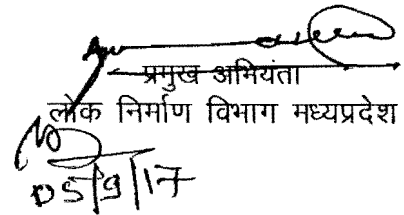 प्रमुख अभियंता
लोक निर्माण विभाग मध्यप्रदेश
05/9/17